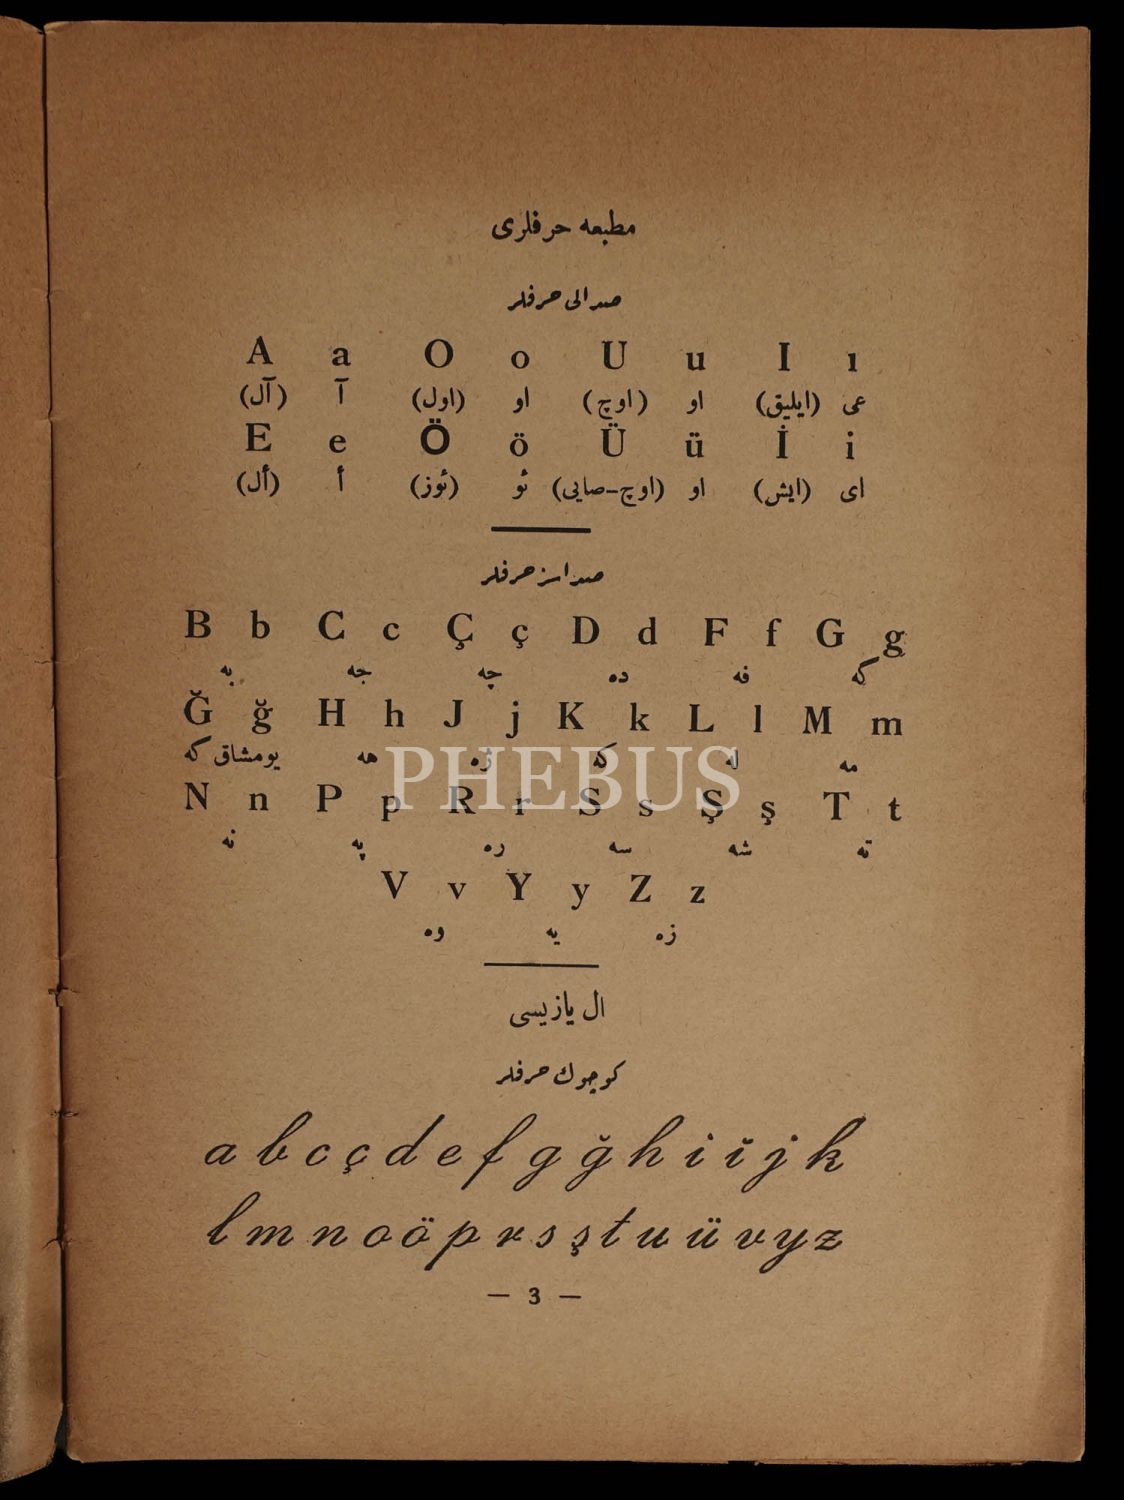 مطبعه حرفلری
صدالی حرفلر
A a O o U u I ı
(آل) آ (اول) او (اوچ) او (ایلیق) عی
E e Ö ö Ü ü İ i
(أل) أ (ئوز) ئو (اوچ-صایی) او (ایش) ای
صداسز حرفلر
B b C c Ç ç D d F f G g
به جه چه ده فه كه
Ğ ğ H h J j K k L l M m
يومشاق كه هه ژه كه له مه
PHEBUS
N n P p R r S s Ş ş T t
نه په ره سه شه ته
V v Y y Z z
وه يه زه
ال يازيسی
كوچوك حرفلر
a b c ç d e f g ğ h i ĭ j k
l m n o ö p r s ş t u ü v y z
— 3 —